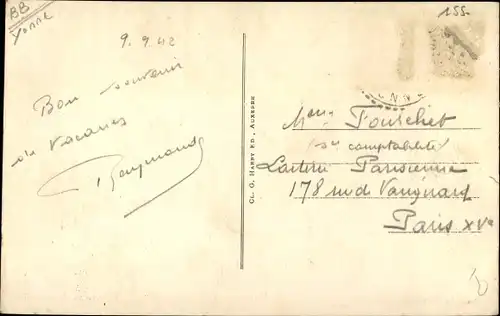 BB
Yonne
155-
9.9.42
Bon souvenir
de vacances
Raymonde
CL. G. HARDY ÉD., AUXERRE
ONNE
Fourchet
(sce comptabilité)
Laiterie Parisienne
178 rue de Vaugirard
Paris XVe